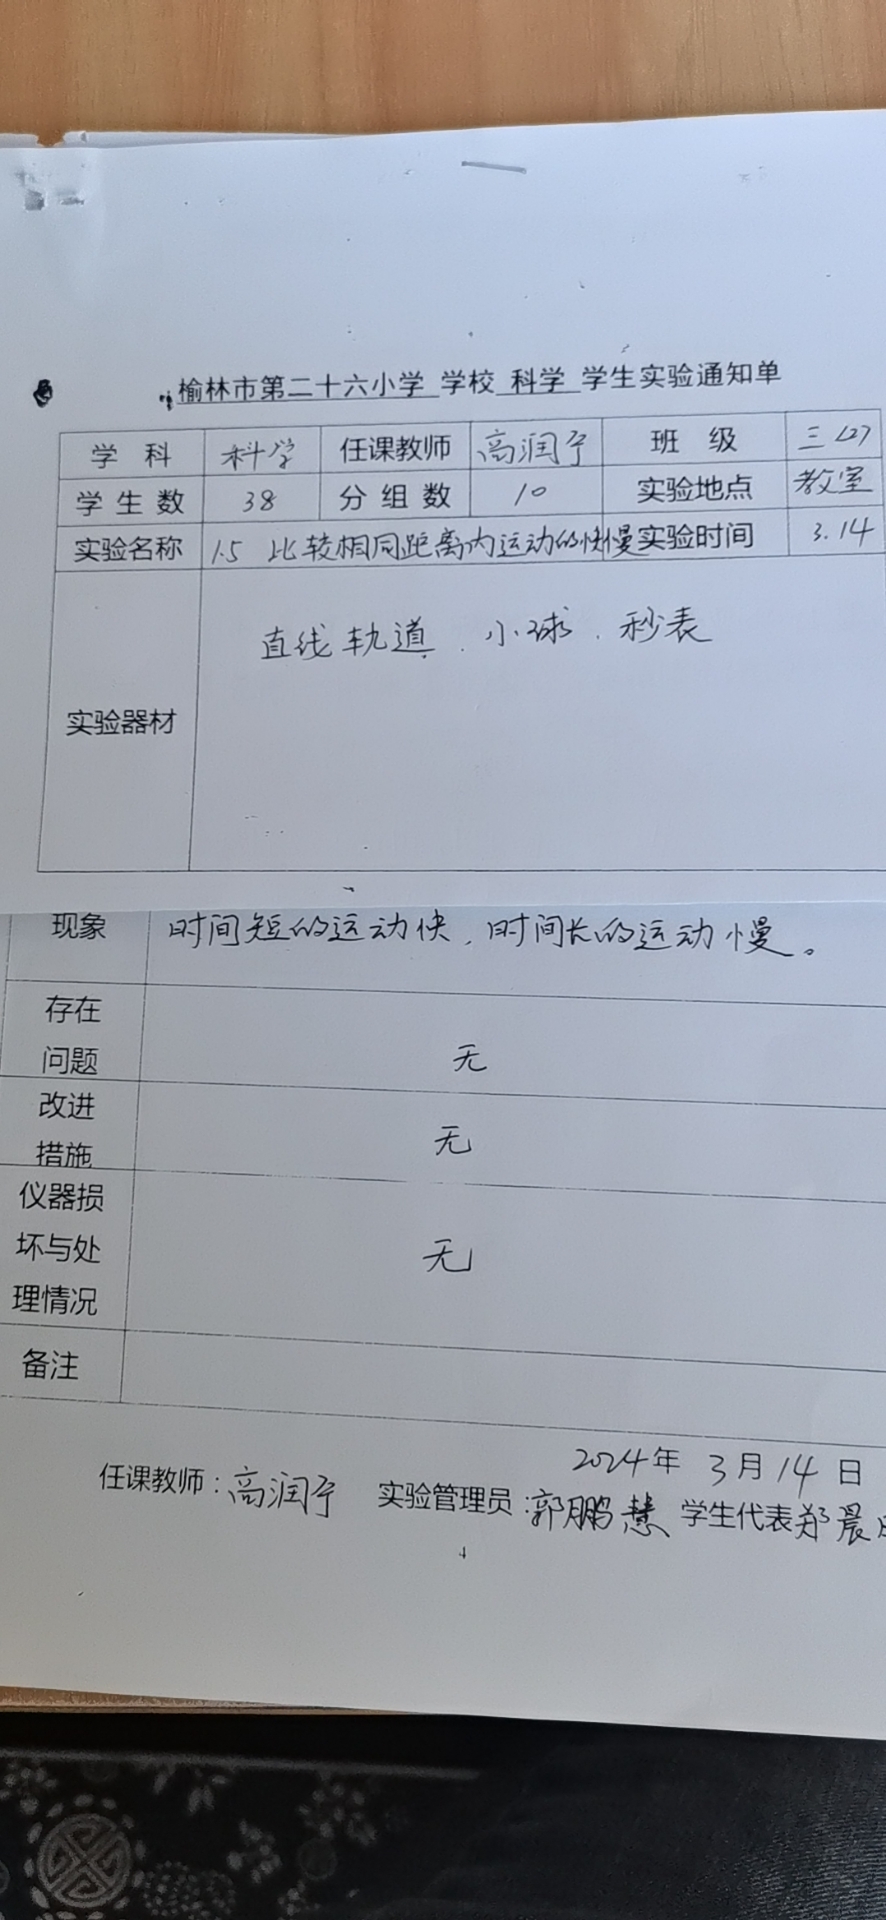 榆林市第二十六小学 学校 科学 学生实验通知单
学科 科学 任课教师 高润宁 班级 三(2)
学生数 38 分组数 10 实验地点 教室
实验名称 1.5 比较相同距离内运动的快慢 实验时间 3.14
实验器材 直线轨道、小球、秒表
现象 时间短的运动快，时间长的运动慢。
存在
问题 无
改进
措施 无
仪器损
坏与处 无
理情况
备注
2024年 3月14日
任课教师：高润宁 实验管理员：郭鹏慧 学生代表郑晨
4